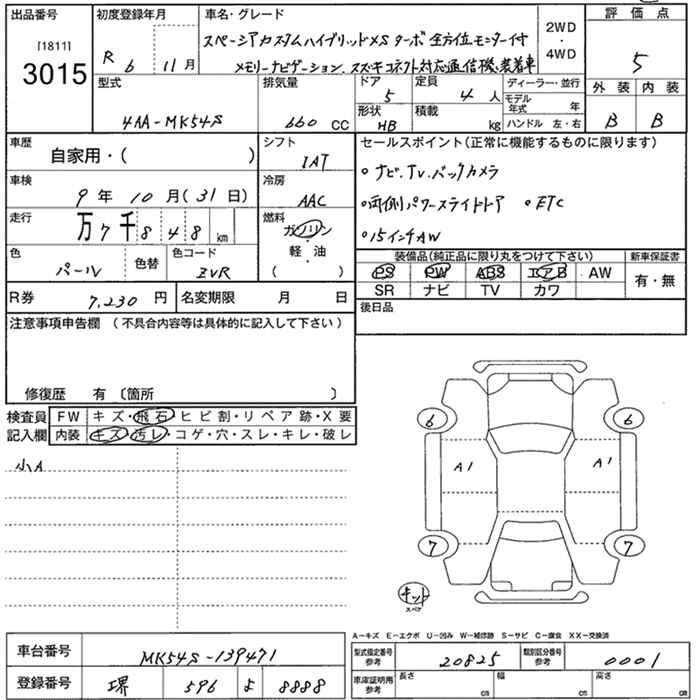 出品番号 初度登録年月 車名・グレード 評価点
[1811] 3015
R 6 11月
スペーシアカスタムハイブリッドXS ターボ 全方位モニター付
メモリーナビゲーション、スズキコネクト対応通信機装着車
2WD・4WD
5
型式 排気量 ドア 定員 ディーラー・並行 外装 内装
4AA-MK54S 660 CC 5 4 人 モデル年式 年
形状 HB 積載 kg ハンドル 左・右 B B
車歴 シフト セールスポイント(正常に機能するものに限ります)
自家用・( ) IAT
・ナビ.TV.バックカメラ
車検 冷房
9年 10月(31日) AAC
・両側パワースライドドア ・ETC
走行 燃料
万7千848 km ガソリン・軽油 ( )
・15インチAW
色 パール 色替 色コード ZVR
装備品(純正品に限り丸をつけて下さい) 新車保証書
PS PW ABS エアB AW 有・無
SR ナビ TV カワ
R券 7.230 円 名変期限 月 日
後日品
注意事項申告欄(不具合内容等は具体的に記入して下さい)
修復歴 有〔箇所 〕
検査員 FW キズ・飛石・ヒビ割・リペア跡・X要
記入欄 内装 キズ・汚レ・コゲ・穴・スレ・キレ・破レ
小A
6 6
A1 A1
7 7
キット
スペア
A-キズ E-エクボ U-凹み W-補修跡 S-サビ C-腐食 XX-交換済
車台番号 MK54S-139471
型式指定番号 参考 20825 類別区分番号 参考 0001
登録番号 堺 596 よ 8888
車庫証明用 参考 長さ cm 幅 cm 高さ cm